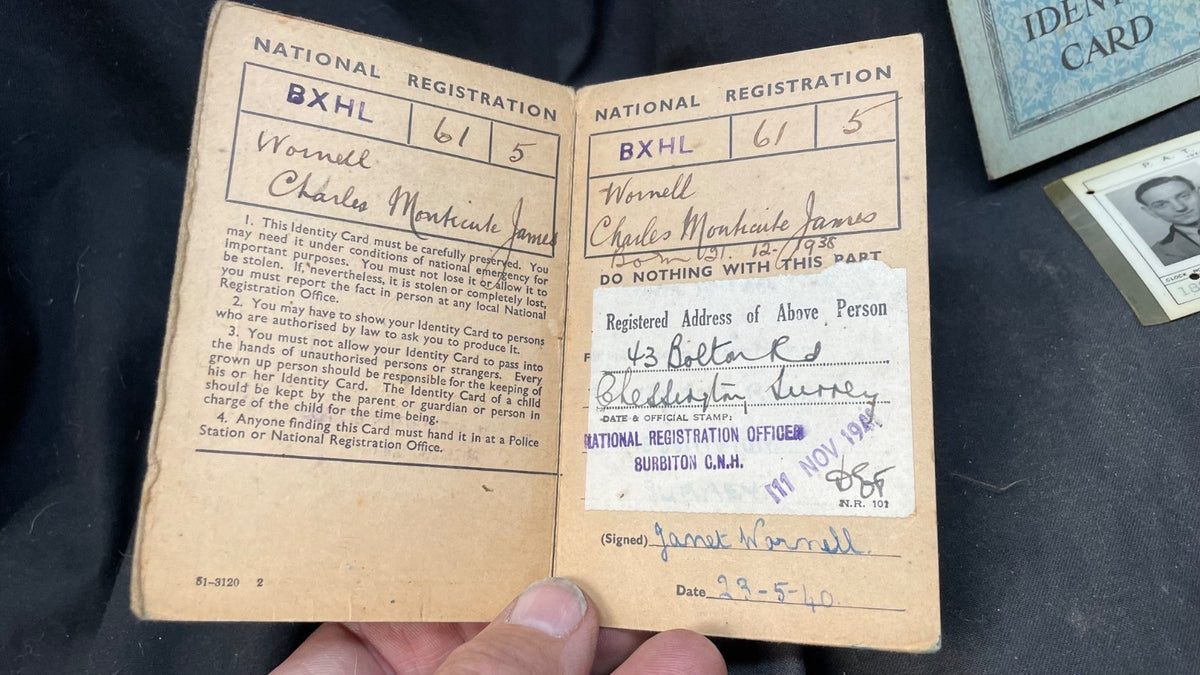 NATIONAL REGISTRATION
BXHL 61 5
Wornell
Charles Monticute James
1. This Identity Card must be carefully preserved. You
may need it under conditions of national emergency for
important purposes. You must not lose it or allow it to
be stolen. If, nevertheless, it is stolen or completely lost,
you must report the fact in person at any local National
Registration Office.
2. You may have to show your Identity Card to persons
who are authorised by law to ask you to produce it.
3. You must not allow your Identity Card to pass into
the hands of unauthorised persons or strangers. Every
grown up person should be responsible for the keeping of
his or her Identity Card. The Identity Card of a child
should be kept by the parent or guardian or person in
charge of the child for the time being.
4. Anyone finding this Card must hand it in at a Police
Station or National Registration Office.
51-3120 2
NATIONAL REGISTRATION
BXHL 61 5
Wornell
Charles Monticute James
Born 21. 12. 1938
DO NOTHING WITH THIS PART
Registered Address of Above Person
43 Bolton Rd
Chessington, Surrey
DATE & OFFICIAL STAMP:
NATIONAL REGISTRATION OFFICER
SURBITON C.N.H.
11 NOV
N.R. 102
(Signed) Janet Wornell.
Date 23-5-40.
CARD